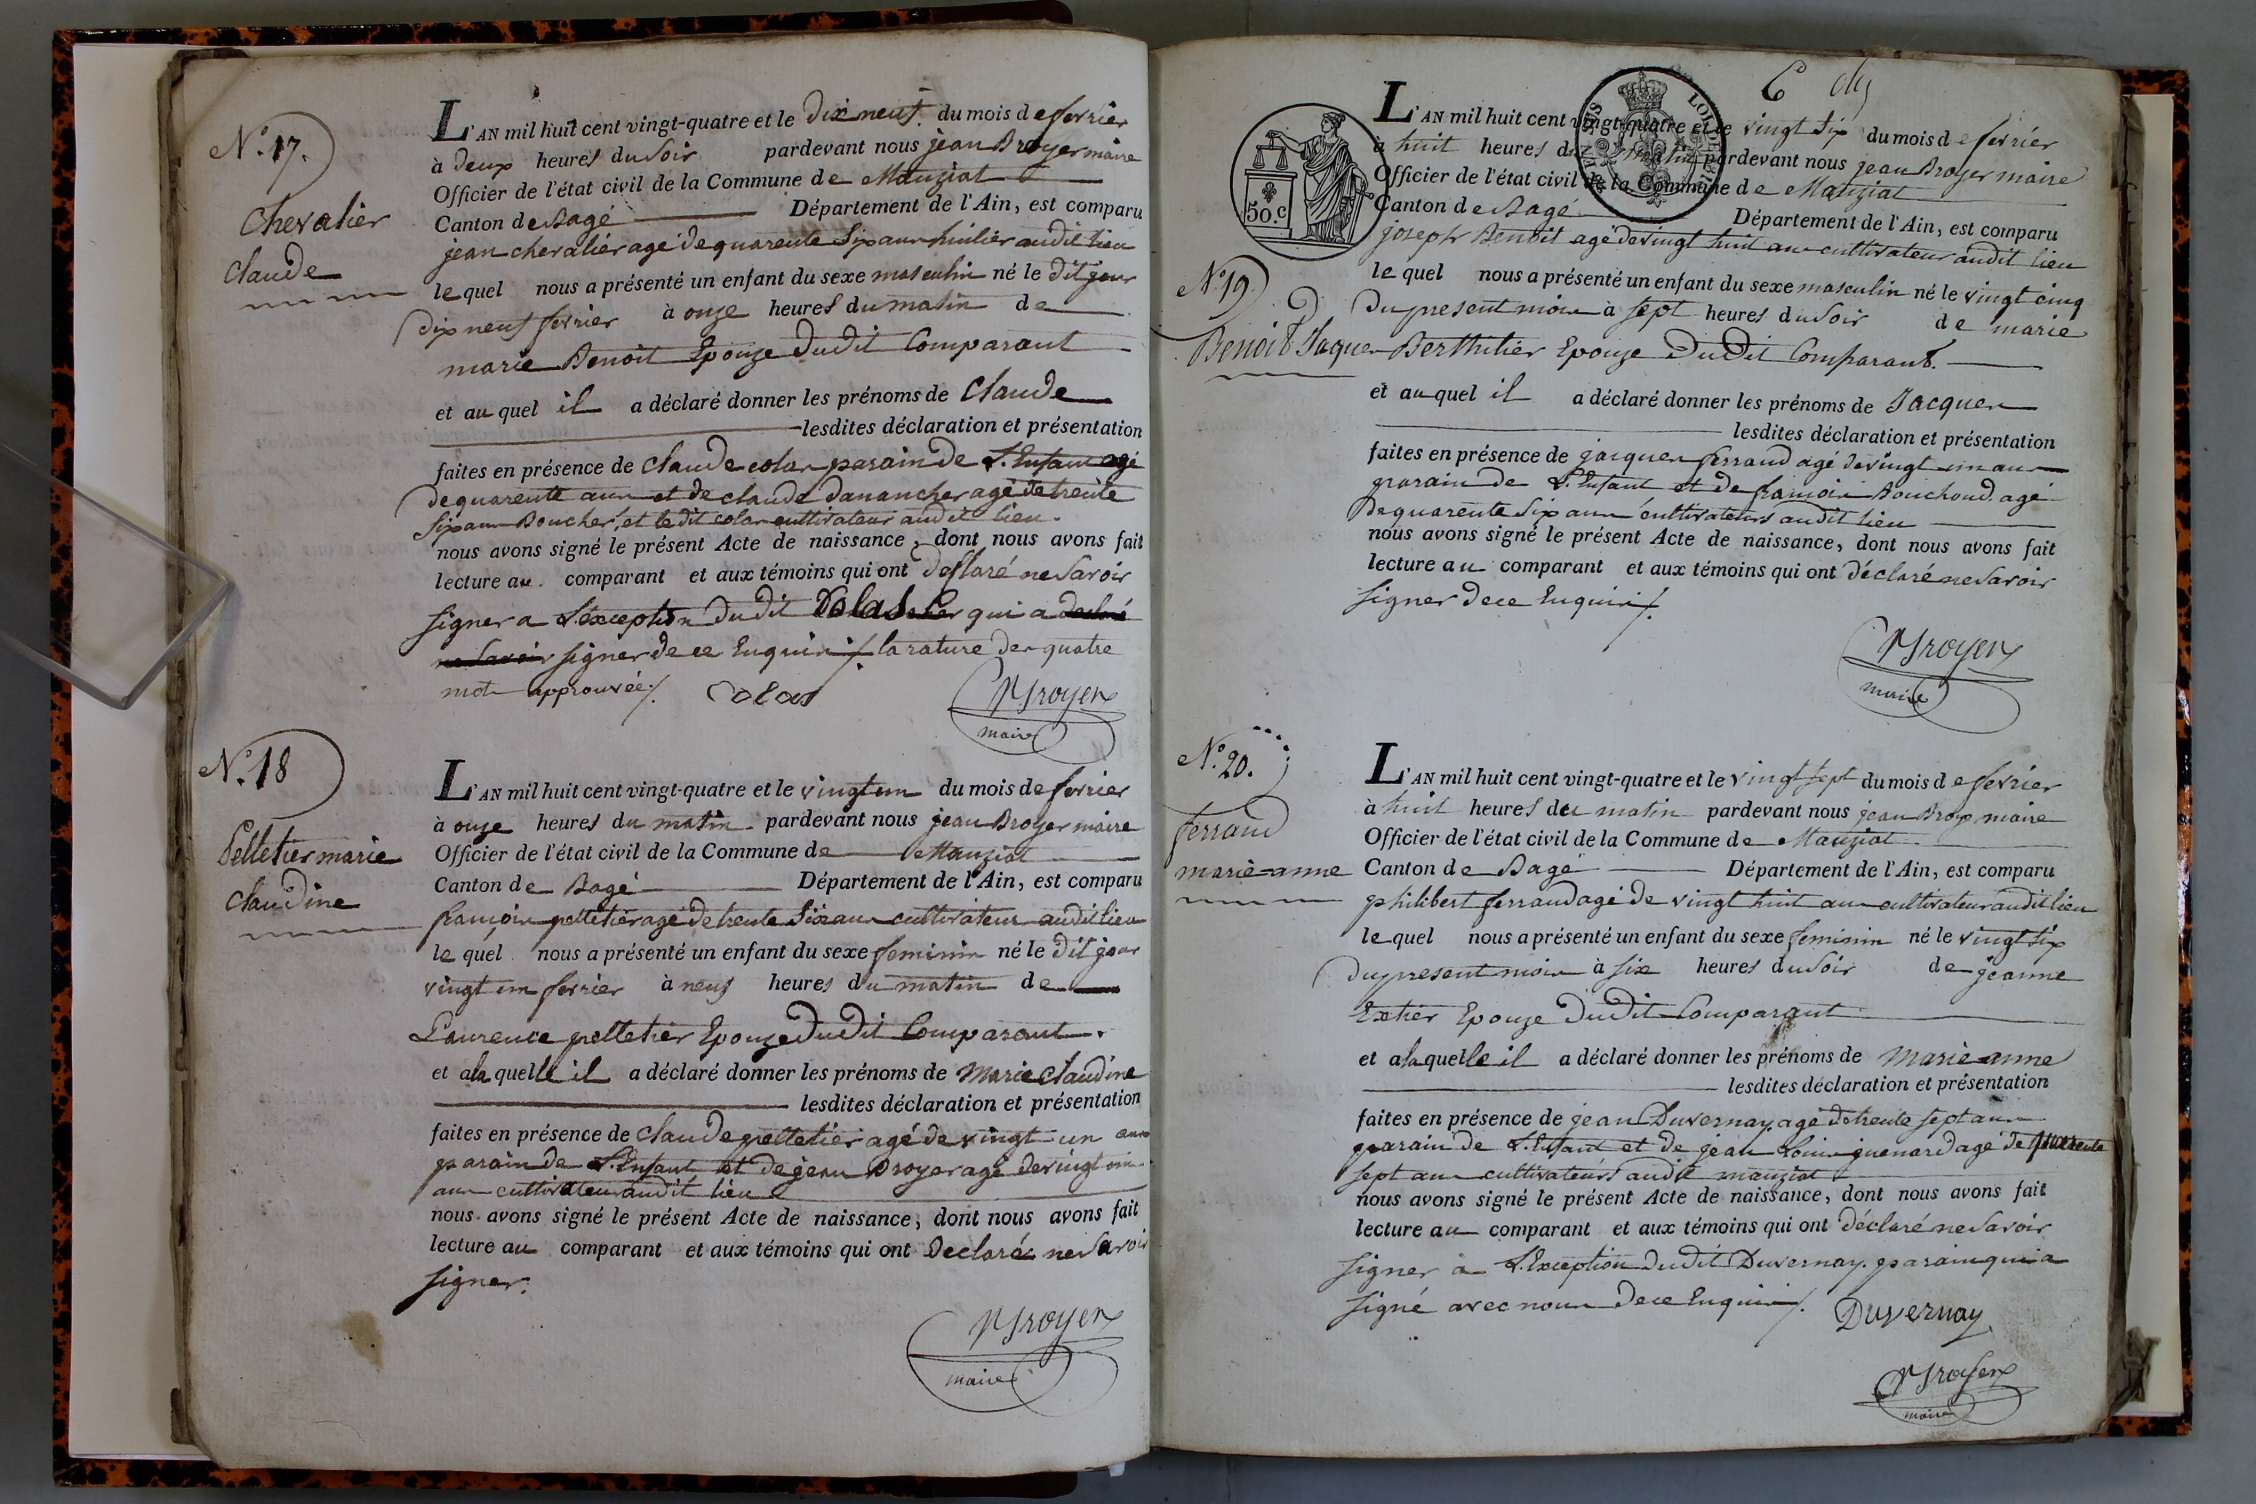 N.º 17.
Chevalier
Claude
L'AN mil huit cent vingt-quatre et le dix neuf. du mois de fevrier
à deux heures du soir pardevant nous jean Broyer maire
Officier de l'état civil de la Commune de Manziat
Canton de Bagé Département de l'Ain, est comparu
jean chevalier agé de quarente six ans huilier audit lieu
lequel nous a présenté un enfant du sexe masculin né le dit jour
dix neuf fevrier à onze heures du matin de
marie Benoit Epouze dudit Comparant
et au quel il a déclaré donner les prénoms de Claude
lesdites déclaration et présentation
faites en présence de Claude colas parain de L'Enfant agé
de quarente ans et de claude Danancher agé de trente
six ans Boucher, et le dit colas cultivateur audit lieu.
nous avons signé le présent Acte de naissance, dont nous avons fait
lecture au comparant et aux témoins qui ont declaré ne Savoir
signer a L'exception du dit Colas qui a declaré
ne Savoir signer de ce Enquis ./. la rature des quatre
mots approuvée ./. Colas Broyer
maire
N.º 18
Pelletier marie
Claudine
L'AN mil huit cent vingt-quatre et le vingt un du mois de fevrier
à onze heures du matin pardevant nous jean Broyer maire
Officier de l'état civil de la Commune de Manziat
Canton de Bagé Département de l'Ain, est comparu
françois pelletier agé de trente six ans cultivateur audit lieu
lequel nous a présenté un enfant du sexe feminin né le dit jour
vingt un fevrier à neuf heures du matin de
Laurence pelletier Epouze dudit Comparant.
et a la quelle il a déclaré donner les prénoms de Marie Claudine
lesdites déclaration et présentation
faites en présence de Claude pelletier agé de vingt-un ans
parain de L'Enfant et de jean Broyer agé de vingt
ans cultivateur audit lieu
nous avons signé le présent Acte de naissance, dont nous avons fait
lecture au comparant et aux témoins qui ont Declarés ne Savoir
signer.
Broyer
maire
50.c
N.º 19.
Benoit Jaques
L'AN mil huit cent vingt-quatre et le vingt six du mois de fevrier
à huit heures du matin pardevant nous jean Broyer maire
Officier de l'état civil de la Commune de Manziat
Canton de Bagé Département de l'Ain, est comparu
joseph Benoit agé de vingt huit ans cultivateur audit lieu
lequel nous a présenté un enfant du sexe masculin né le vingt cinq
du present mois à sept heures du Soir de marie
Berthilier Epouze Dudit Comparant.
et au quel il a déclaré donner les prénoms de Jacques
lesdites déclaration et présentation
faites en présence de jacques ferraud agé de vingt un ans
parain de L'Enfant et de françois Bouchoud agé
de quarente six ans cultivateurs audit lieu
nous avons signé le présent Acte de naissance, dont nous avons fait
lecture au comparant et aux témoins qui ont déclaré ne Savoir
signer de ce Enquis ./.
Broyer
maire
N.º 20.
ferraud
marie-anne
L'AN mil huit cent vingt-quatre et le vingt sept du mois de fevrier
à huit heures du matin pardevant nous jean Broyer maire
Officier de l'état civil de la Commune de Manziat
Canton de Bagé Département de l'Ain, est comparu
philibert ferraud agé de vingt huit ans cultivateur audit lieu
lequel nous a présenté un enfant du sexe feminin né le vingt six
du present mois à six heures du Soir de jeanne
Extier Epouze Dudit Comparant
et a la quelle il a déclaré donner les prénoms de Marie-anne
lesdites déclaration et présentation
faites en présence de jean Duvernay agé de trente sept ans
parain de L'Enfant et de jean Louis guenard agé de quarente
sept ans cultivateurs audit manziat
nous avons signé le présent Acte de naissance, dont nous avons fait
lecture au comparant et aux témoins qui ont déclaré ne Savoir
signer à L'Exception dudit Duvernay parain qui a
signé avec nous de ce Enquis ./. Duvernay
Broyer
maire